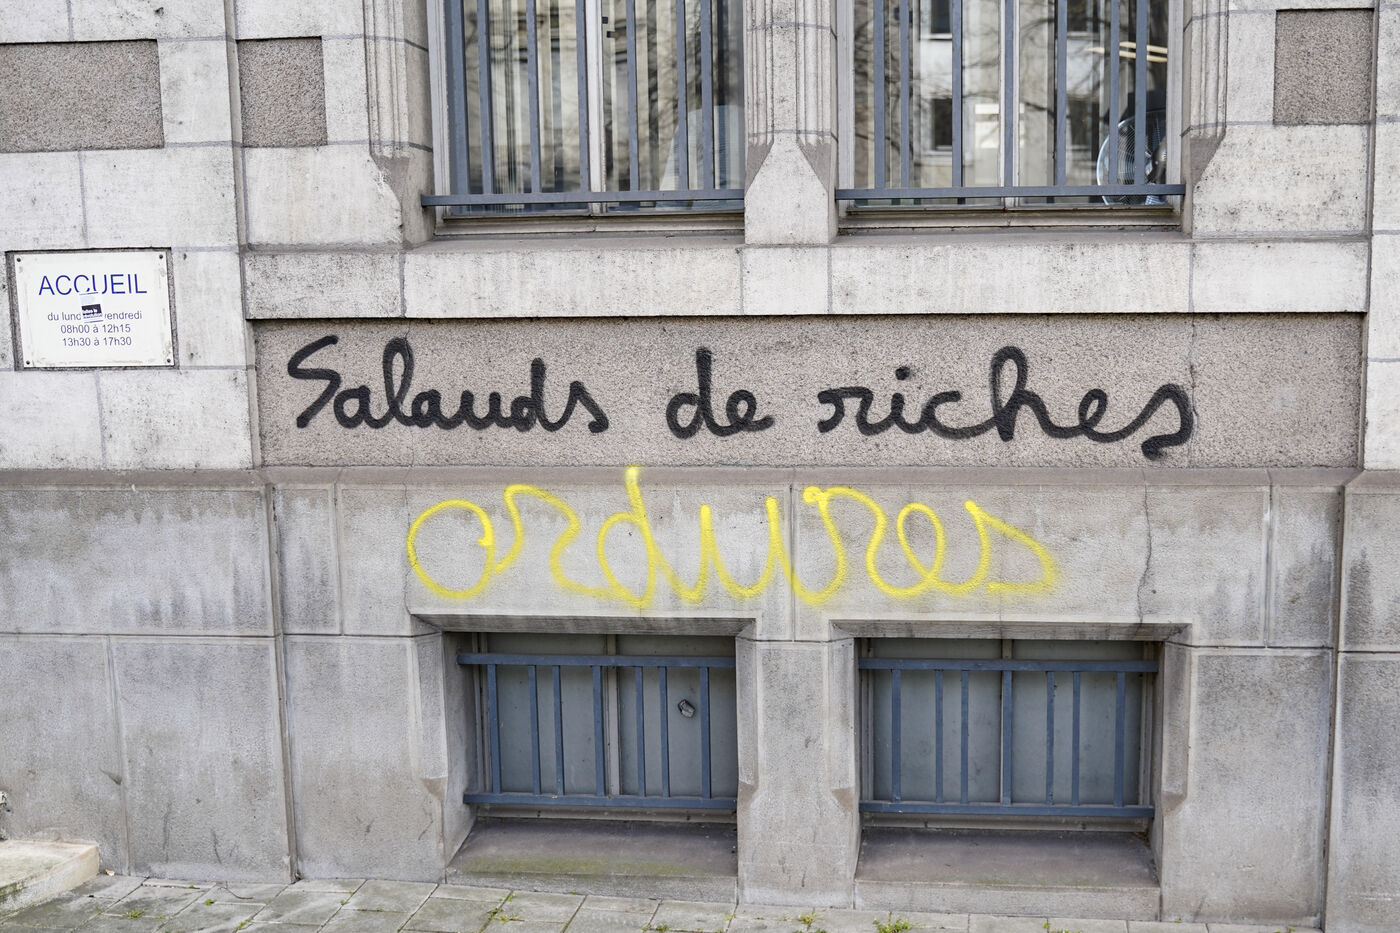 ACCUEIL
du lundi vendredi
08h00 à 12h15
13h30 à 17h30
Salauds de riches
ordures